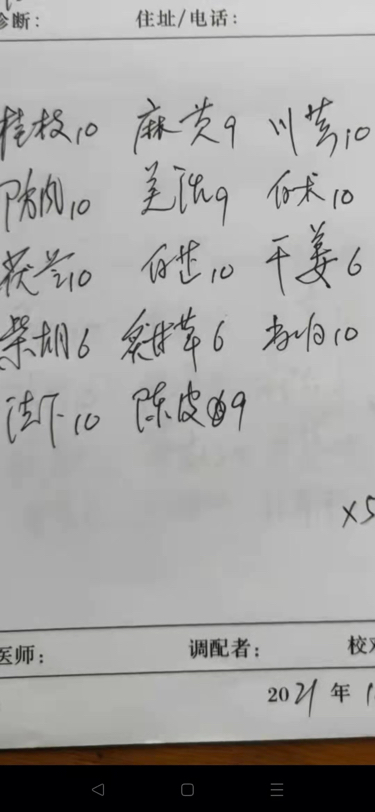 诊断: 住址/电话:
桂枝10 麻黄9 川芎10
防风10 羌活9 白术10
茯苓10 白芷10 干姜6
柴胡6 炙甘草6 当归10
法下10 陈皮9
x5
医师: 调配者: 校对
2021年1